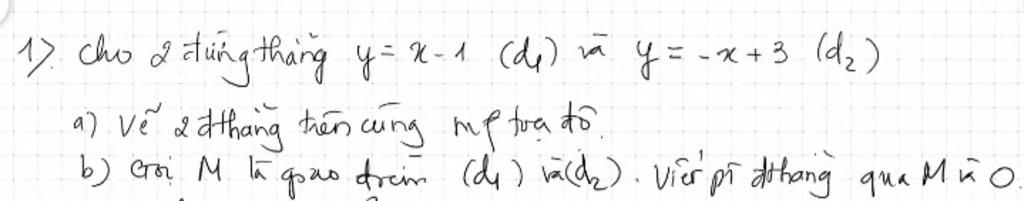 1). Cho 2 đường thẳng y = x - 1 (d₁) và y = -x + 3 (d₂)
a) Vẽ 2 đthẳng trên cùng mp toạ độ.
b) Gọi M là giao điểm (d₁) và (d₂). Viết pt đthẳng qua M và O.